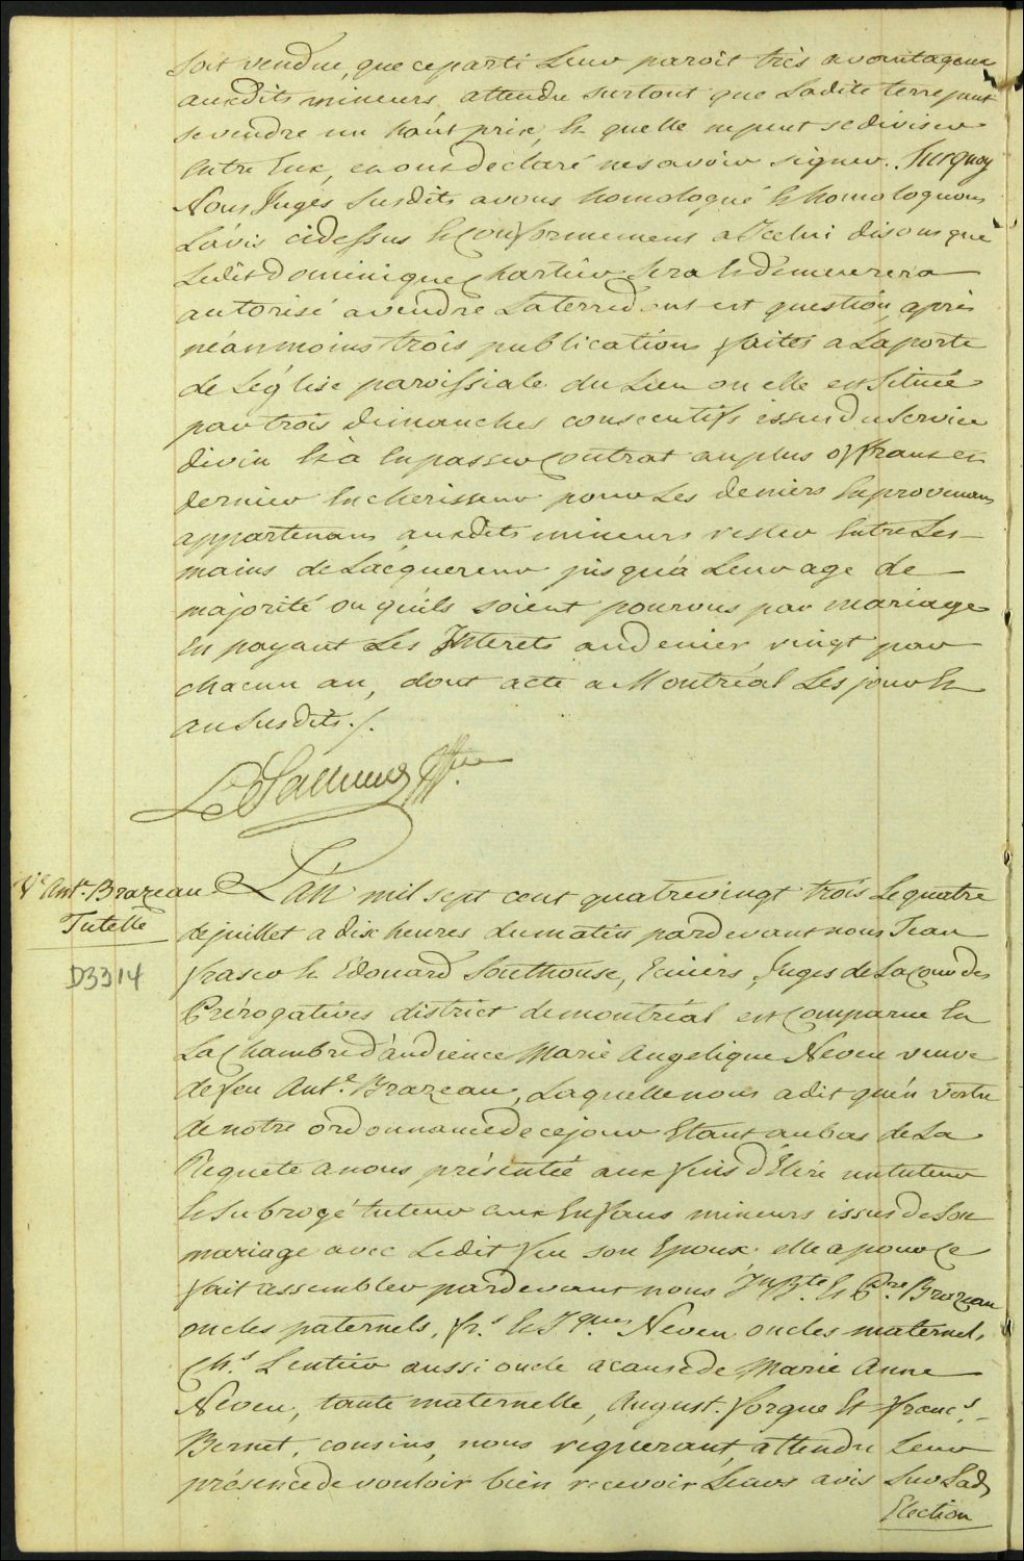 soit vendue, que ce parti Leur paroit très avantageux
auxdits mineurs attendu surtout que Ladite terre peut
se vendre un haut prix, Et quelle ne peut se diviser
Entre Eux, en ont declaré ne savoir signer. Surquoy
Nous Juges Susdits avons homologué & homologuons
L'avis cidessus & Conformement a Icelui disons que
Ledit Dominique Chartier Sera & demeurera
autorisé a vendre La terre dont est question, après
néanmoins trois publications faites a La porte
de L'église paroissiale du Lieu ou elle est Située
par trois dimanches consecutifs issue du Service
divin & à En passer Contrat au plus offrant et
dernier Encherisseur pour Les deniers En provenans
appartenans auxdits mineurs rester Entre Les
mains de L'acquereur jusqu'a Leur age de
majorité ou qu'ils soient pourvus par mariage
En payant Les Interets au denier vingt par
chacun an, dont acte a Montréal Les jour &
an Susdits ./.
Ve Ant.e Brazeau
Tutelle
D3314
L'an mil sept cent quatrevingt trois Le quatre
de juillet a dix heures du matin pardevant nous Jean
fraser & Edouard Southouse, Ecuiers, Juges de La Cour des
Prérogatives district de montréal est Comparue En
La Chambre d'audience Marie Angelique Neveu veuve
de feu Ant.e Brazeau, Laquelle nous a dit qu'en vertu
de notre ordonnance de ce jour Etant au bas de La
Requete a nous présentée aux fins d'Elire un tuteur
& Subrogé tuteur aux Enfans mineurs issus de Son
mariage avec Ledit feu son Epoux elle a pour Ce
fait assembler pardevant nous Jn Bte. & Prre. Brazeau
oncles paternels, fr.s & Jques Neveu oncles maternels,
Ch.s Lentier aussi oncle a cause de Marie Anne
Neveu, tante maternelle, August. forque Et franc.s
Bernet, cousins, nous requerant, attendu Leur
présence de vouloir bien recevoir Leurs avis Sur Lad.
Election